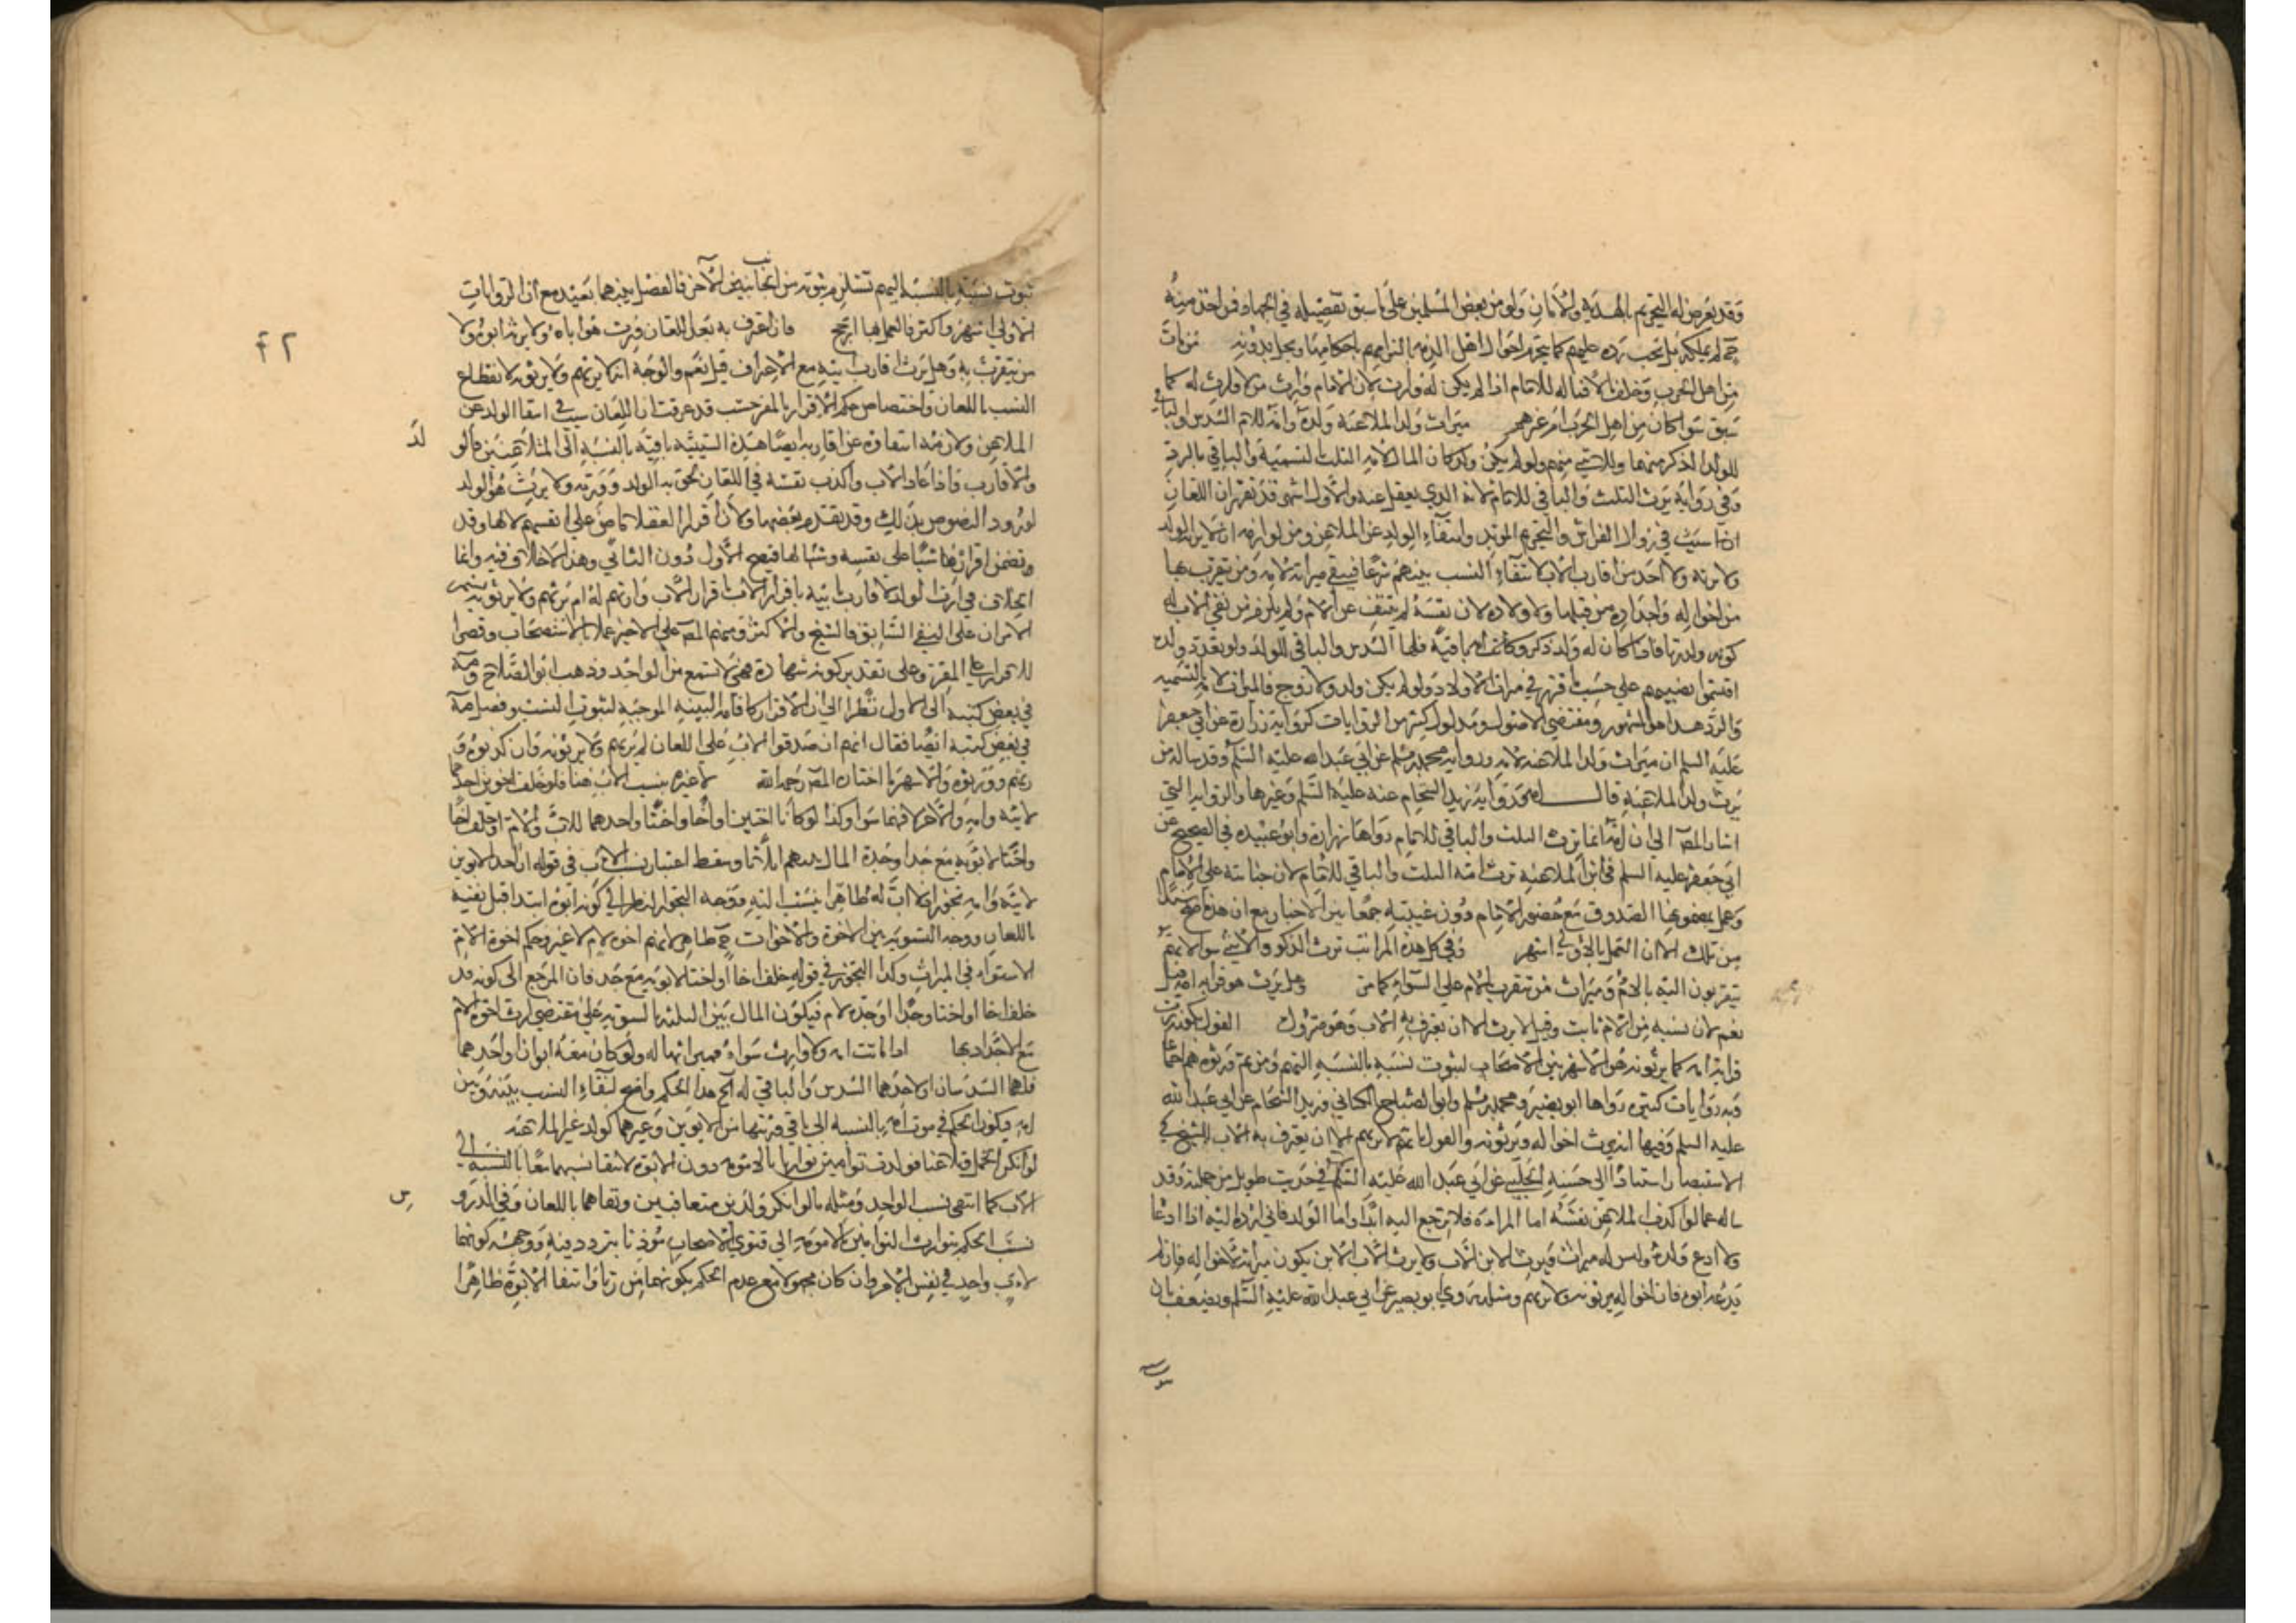 وقد يعرض له التحريم بالهدنة والأمان ولو من بعض المسلمين على ما سبق تفصيله في الجهاد فمن اخذ منه
ح لم يملكه بل يجب رده عليهم كما يحرم اموال اهل الذمة بالتزامهم باحكامها ويحل بدونه من مات
من اهل الحرب وخلف مالا فماله للامام اذا لم يكن له وارث لان الامام وارث من لا وارث له كما
سبق سوا كان من اهل الحرب ام غيرهم ميراث ولد الملاعنة ولده وامه للام السدس والباقي
للولد الذكر منهما وللانثى سهم ولو لم يكن ولد كان المال لامه الثلث بالتسمية والباقي بالرد
وفي رواية ترث الثلث والباقي للامام لانه الذي يعقل عنه والاول اشهر قد تقرر ان اللعان
سبب في زوال الفراش والتحريم المؤبد وانتفاء الولد عن الملاعن ومن لوازمه انه لا يرث الولد
ولا يرثه ولا احد من اقارب الاب لانتفاء النسب بينهم شرعا فيبقى ميراثه لامه ومن يتقرب بها
من اخواله واجداده من قبلها ولاولاده لان نفسه لم ينتف عن الام ولم يلزم من نفي الاب له
كونه ولد زنا فاذا كان له ولد ذكر وكانت امه باقية فلها السدس والباقي للولد ولو تعدد ولده
اقتسموا نصيبهم على حسب ما قرر في ميراث الاولاد ولو لم يكن ولد ولا زوج فالميراث لامه بالتسمية
والرد هذا هو المشهور ومقتضى الاصول ومدلول كثير من الروايات كرواية زرارة عن ابي جعفر
عليه السلم ان ميراث ولد الملاعنة لامه ورواية محمد بن مسلم عن ابي عبد الله عليه السلم وقد ساله من
يرث ولد الملاعنة قال امه ورواية زيد الشحام عنه عليه السلم وغيرها والرواية التي
اشار المص الى ان امه انما ترث الثلث والباقي للامام رواها زرارة وابو عبيدة في الصحيح عن
ابي جعفر عليه السلم في ابن الملاعنة ترث امه الثلث والباقي للامام لان جنايته على الامام
وعمل بمضمونها الصدوق مع حضور الامام دون غيبته جمعا بين الاخبار مع ان هذه اصح سندا
من تلك الا ان العمل بالاولى اشهر وفي كل هذه المراتب ترث الذكر والانثى سوا لانهم
يتقربون اليه بالام وميراث من يتقرب بالام على السواء كما مر وهل يرث هو قرابة امه قيل
نعم لان نسبه من الام ثابت وقيل لا يرث الا ان يعترف به الاب وهو متروك القول بكونه يرث
قرابة امه كما يرثونه هو الاشهر بين الاصحاب لثبوت نسبه بالنسبة اليهم ومن ثم ورثوه هم اجماعا
وبه روايات كثيرة رواها ابو بصير ومحمد بن مسلم وابو الصباح الكناني وزيد الشحام عن ابي عبد الله
عليه السلم وفيها انه يرث اخواله ويرثونه والقول بانه لا يرثهم الا ان يعترف به الاب للشيخ في
الاستبصار استنادا الى حسنة الحلبي عن ابي عبد الله عليه السلم في حديث طويل من جملته وقد
ساله عما لو اكذب الملاعن نفسه اما المراة فلا ترجع اليه ابدا واما الولد فاني ارده اليه اذا ادعاه
ولا ادع ولده وليس له ميراث ويرث الابن الاب ولا يرث الاب الابن يكون ميراثه لاخواله فان لم
يدعه ابوه فان اخواله يرثونه ولا يرثهم ومثله روى ابو بصير عن ابي عبد الله عليه السلم ويضعف بان
ثبوت نسبه بالنسبة اليهم تستلزم ثبوته من الجانبين الآخر فالفصل بينهما بعيد مع ان الروايات
الاولى اشهر واكثر فالعمل بها ارجح فان اعترف به بعد اللعان ورث هو اباه ولا يرثه ابوه ولا
من يتقرب به وهل يرث اقارب ابيه مع الاعتراف قيل نعم والوجه انه لا يرثهم ولا يرثونه لانقطاع
النسب باللعان واختصاص حكم الاقرار بالمقر حسب قد عرفت ان اللعان سبب في انتفا الولد عن
الملاعن ولازمه انتفاؤه عن اقاربه ايضا هذه السببية باقية بالنسبة الى المتلاعنين
والاقارب فاذا عاد الاب واكذب نفسه في اللعان لحق به الولد وورثه ولا يرث هو الولد
لورود النصوص بذلك وقد تقدم بعضها ولان اقرار العقلا ماض على انفسهم لا لها وقد
وتضمن اقراره هنا شيا على نفسه وشيا لها فيصح الاول دون الثاني وهذا لا خلاف فيه وانما
الخلاف في ارث الولد لاقارب ابيه باقرار الاب وارثهم له ام يرثهم ولا يرثونه
على النفي السابق فالشيخ والاكثر ومنهم المص على الاخير عملا بالاستصحاب وقصرا
للاقرار على المقر وعلى تقدير كونه شهادة فهي لا تسمع من الواحد وذهب ابو الصلاح
في بعض كتبه الى الاول نظرا الى ان الاقرار كاقامة البينة الموجبة لثبوت النسب وفصل
في بعض كتبه ايضا فقال انهم ان صدقوا الاب على اللعان لم يرثهم ولا يرثونه وان كذبوه
ورثهم وورثوه والاشهر ما اختاره المص رحمه الله لا عبرة بنسب الاب هنا فلو خلف اخوين احدهما
لابيه وامه والآخر لامه فهما سوا وكذا لو كانا اختين او اخا واختا واحدهما للاب والام او خلف اخا
واختا لابويه مع جد او جدة المال بينهم اثلاثا وسقط اعتبار نسب الاب في قوله ان احد الاخوين
لابيه وامه تجوز اذ لا اب له ظاهرا ينسب اليه ووجه التجوز النظر الى كونه ابوه ابتدا قبل نفيه
باللعان ووجه التسوية بين الاخوة والاخوات ح ظاهر لانهم اخوة لام لا غير وحكم اخوة الام
الاستواء في الميراث وكذا التجوز في قوله خلف اخا او اختا لابويه مع جد فان المرجع الى كونه قد
خلف اخا او اختا وجدا او جدة لام فيكون المال بين الثلاثة بالسوية على مقتضى ارث اخوة الام
مع الاجداد لها اذا ماتت امه ولا وارث سواه فميراثها له ولو كان معه ابوان او احدهما
فلهما السدسان او لاحدهما السدس والباقي له الخ هذا الحكم واضح لانتفاء النسب بينه وبين
ابيه فيكون الحكم في موت امه بالنسبة الى باقي ورثتها من الابوين وغيرهما كولد غير الملاعنة
لو انكر الحمل وتلاعنا فولدت توامين توارثا بالامومة دون الابوة لانتفا نسبهما معا بالنسبة الى
الاب كما انتفى نسب الواحد ومثله ما لو انكر ولدين متعاقبين ونفاهما باللعان وفي الدروس
نسب الحكم بتوارث التوامين بالامومة الى فتوى الاصحاب مؤذنا بتردده فيه ووجهه كونهما
لاب واحد في نفس الامر وان كان مجهولا مع عدم الحكم بكونهما من زنا وانتفا الابوة ظاهرا